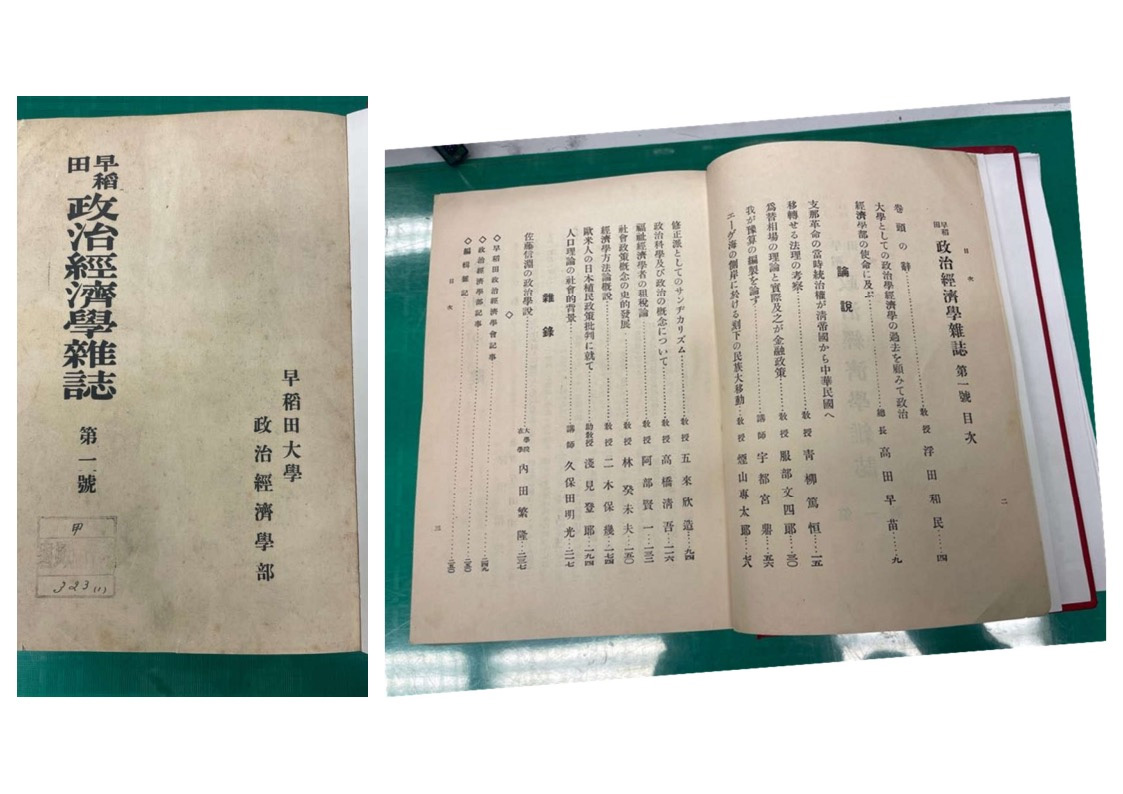 早稻田
政治經濟學雜誌
第一號
早稻田大學
政治經濟學部
甲
323(1)
目次
早稻田 政治經濟學雜誌 第一號 目次
卷頭の辭……敎授 浮田和民…四
大學としての政治學經濟學の過去を顧みて政治
經濟學部の使命に及ぶ……總長 高田早苗…九
論說
支那革命の當時統治權が淸帝國から中華民國へ
移轉せる法理の考察……敎授 靑柳篤恒…一五
爲替相場の理論と實際及之が金融政策……敎授 服部文四郞…三〇
我が豫算の編製を論ず……講師 宇都宮鼎…五六
エーゲ海の側岸に於ける刻下の民族大移動…敎授 煙山專太郞…七八
二
修正派としてのサンヂカリズム……敎授 五來欣造…九四
政治科學及び政治の概念について……敎授 高橋淸吾…一一六
福祉經濟學者の租稅論……敎授 阿部賢一…一三二
社會政策概念の史的發展……敎授 林癸未夫…一五〇
經濟學方法論槪說……敎授 二木保幾…一七四
歐米人の日本植民政策批判に就て……助敎授 淺見登郞…一九四
人口理論の社會的背景……講師 久保田明光…二一七
雜錄
佐藤信淵の政治學說……大學院在學 內田繁隆…二三七
◇
◇早稻田政治經濟學會記事……二四九
◇政治經濟學部記事……二五〇
◇編輯雜記……二五〇
目次
三